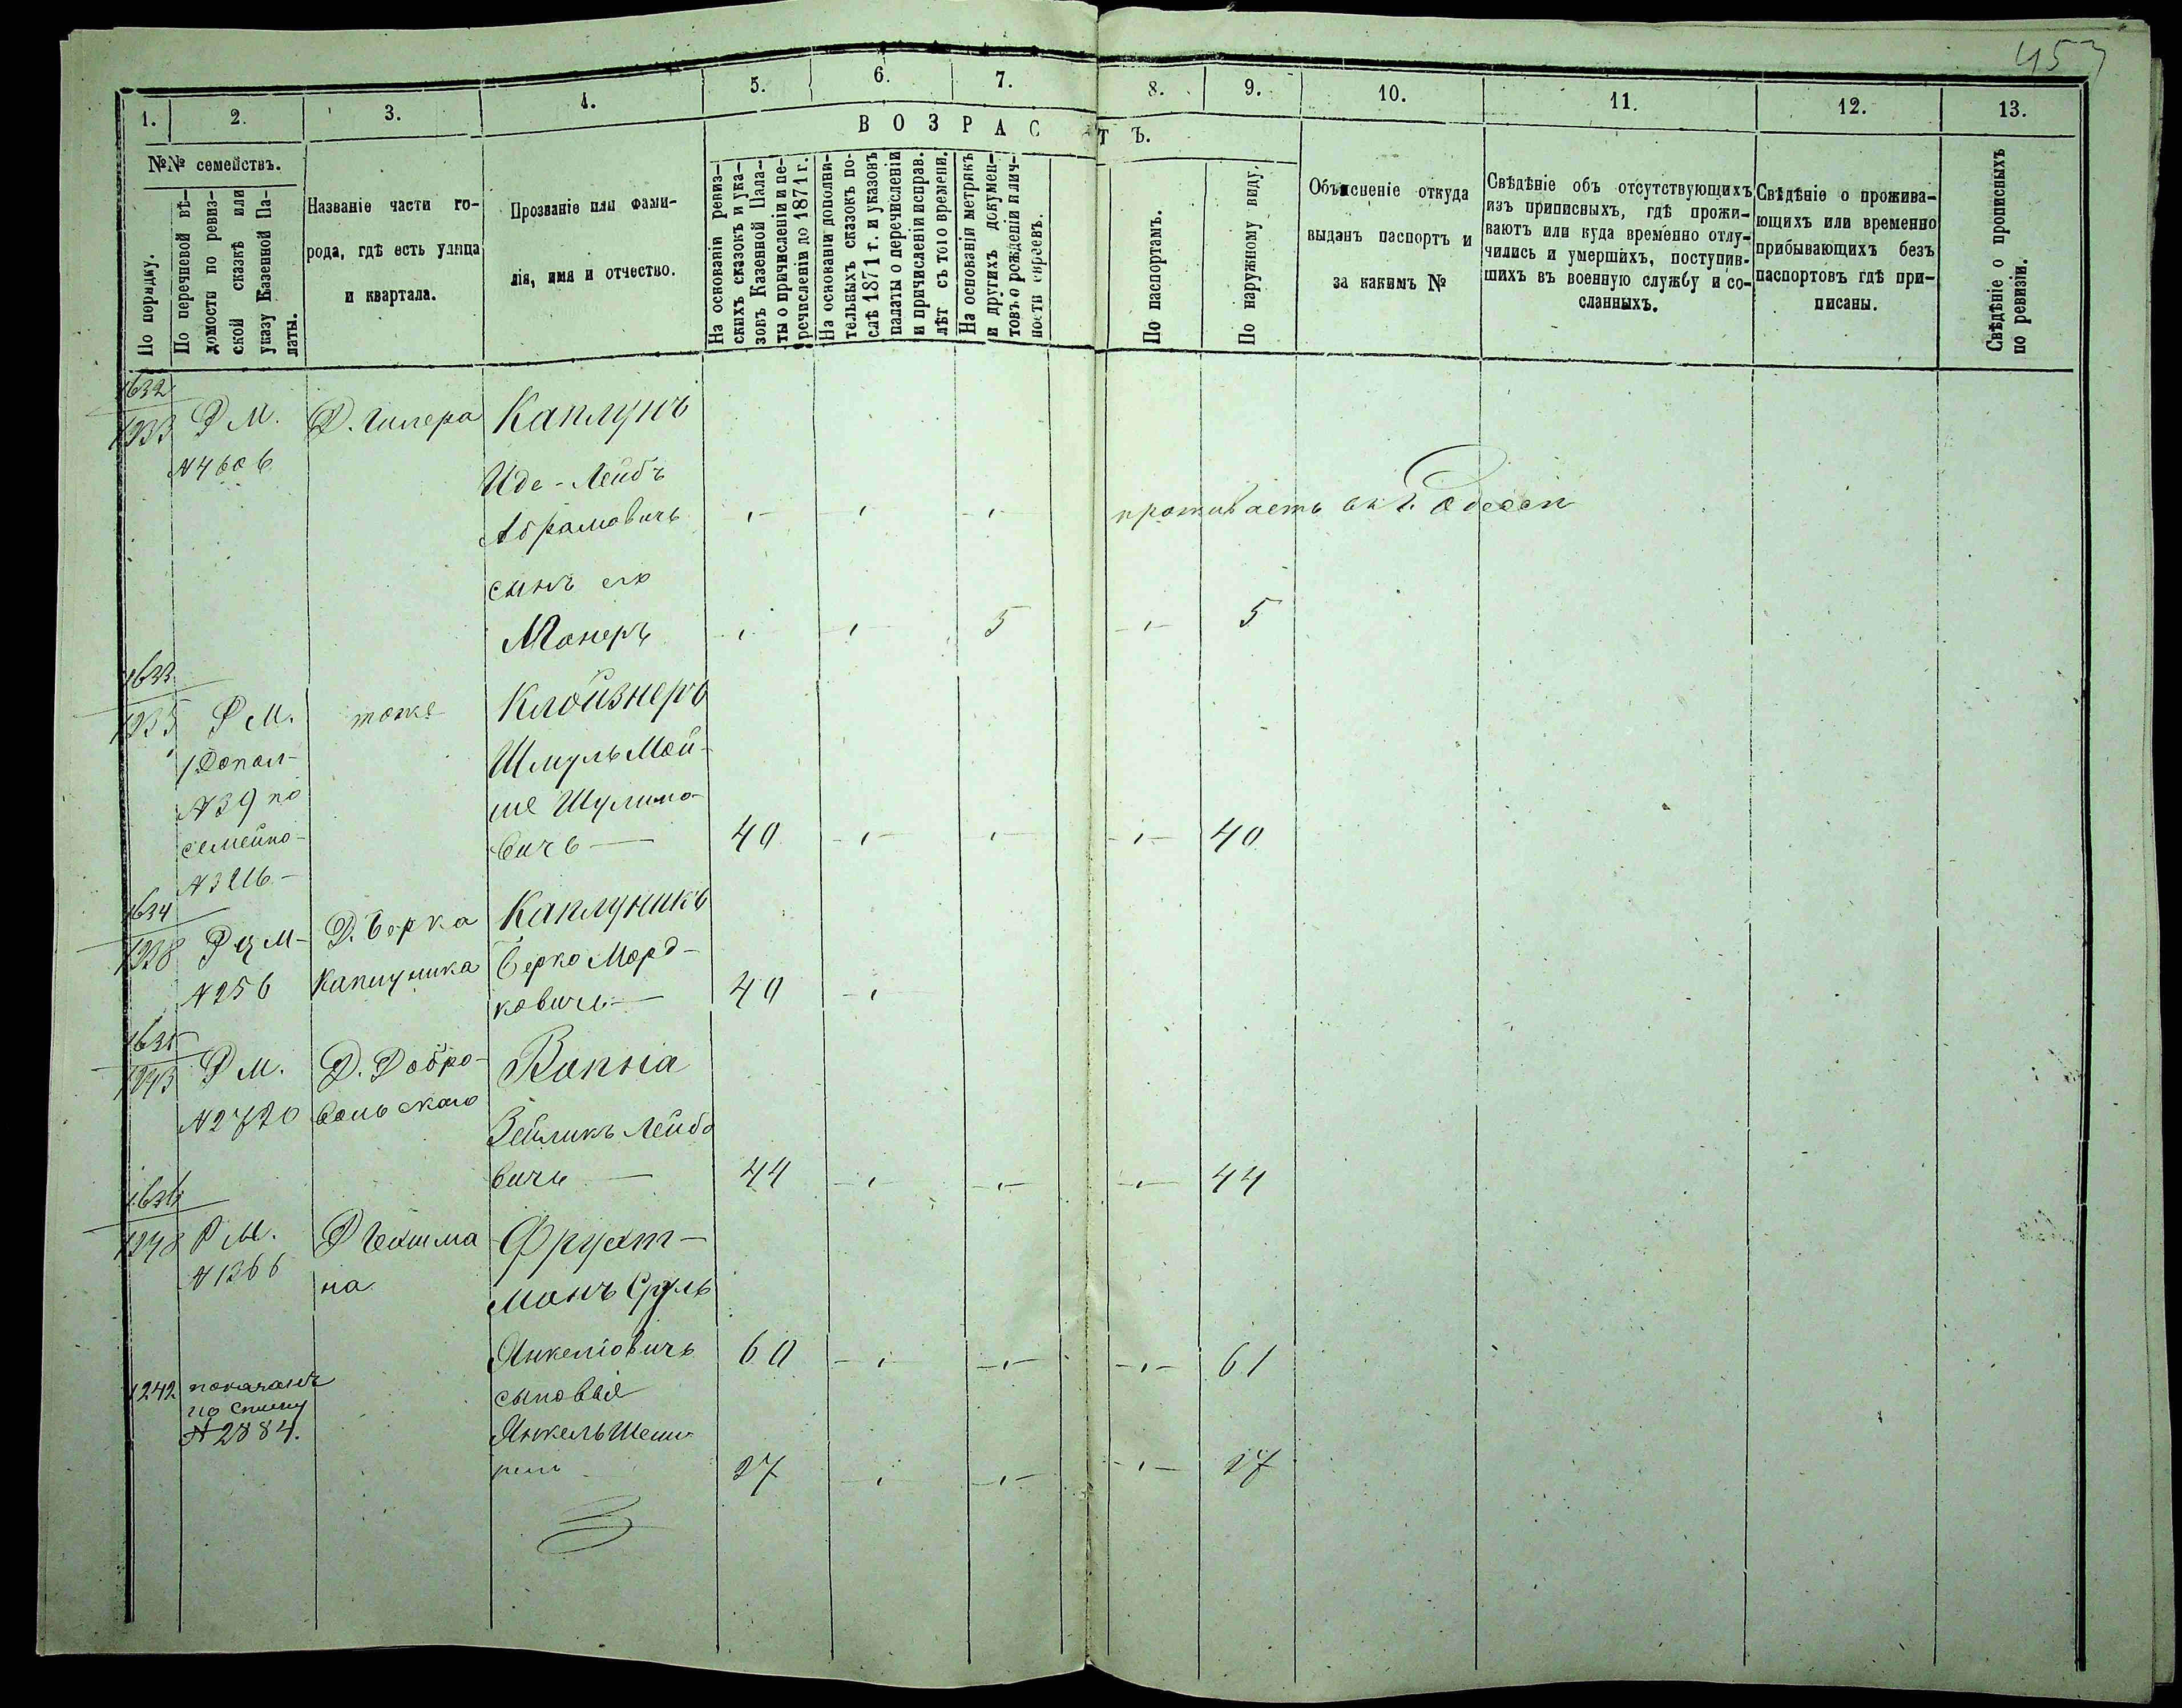 453
1. 2. 3. 4. 5. 6. 7. 8. 9. 10. 11. 12. 13.
ВОЗРАСТЪ.
№№ семействъ.
По порядку.
По перечневой вѣ-
домости по ревиз-
ской сказкѣ или
указу Казенной Па-
латы.
Названіе части го-
рода, гдѣ есть улица
и квартала.
Прозваніе или фами-
лія, имя и отчество.
На основаніи ревиз-
скихъ сказокъ и ука-
зовъ Казенной Пала-
ты о причисленіи и пе-
речисленіи до 1871 г.
На основаніи дополни-
тельныхъ сказокъ по-
слѣ 1871 г. и указовъ
палаты о перечисленіи
и причисленіи исправ.
лѣт съ того времени.
На основаніи метрикъ
и другихъ докумен-
товъ о рожденіи и лич-
ности евреевъ.
По паспортамъ.
По наружному виду.
Объясненіе откуда
выданъ паспортъ и
за какимъ №
Свѣдѣніе объ отсутствующихъ
изъ приписныхъ, гдѣ прожи-
ваютъ или куда временно отлу-
чились и умершихъ, поступив-
шихъ въ военную службу и со-
сланныхъ.
Свѣдѣніе о прожива-
ющихъ или временно
прибывающихъ безъ
паспортовъ гдѣ при-
писаны.
Свѣдѣніе о прописныхъ
по ревизіи.
1632
1233 Р М. Д. Каплунъ
№ 4606
Иде-Лейбъ
Абрамовичъ проживаетъ въ г. Одессѣ
сынъ его
Монеръ 5 5
1633
1235 Р М. тоже Клойзнеръ
Допол-
Шмуль Мой-
№ 39 по
ше Шулимо-
семейно-
вичъ 40 40
№ 3216
1634
1238 Р М Д. Берка Каплуникъ
№ 256 Каплуника Берко Морд-
ковичъ 40
1635
1243 Р М. Д. Добро- Вапня
№ 2720 вольского
Зейликъ Лейбо
вичъ 44 44
1636
1248 Р М. Фрухт-
№ 1366 на
манъ Сруль
Янкеліовичъ 60 61
1242 показанъ
по списку
сыновья
№ 2884.
Янкель
27 27